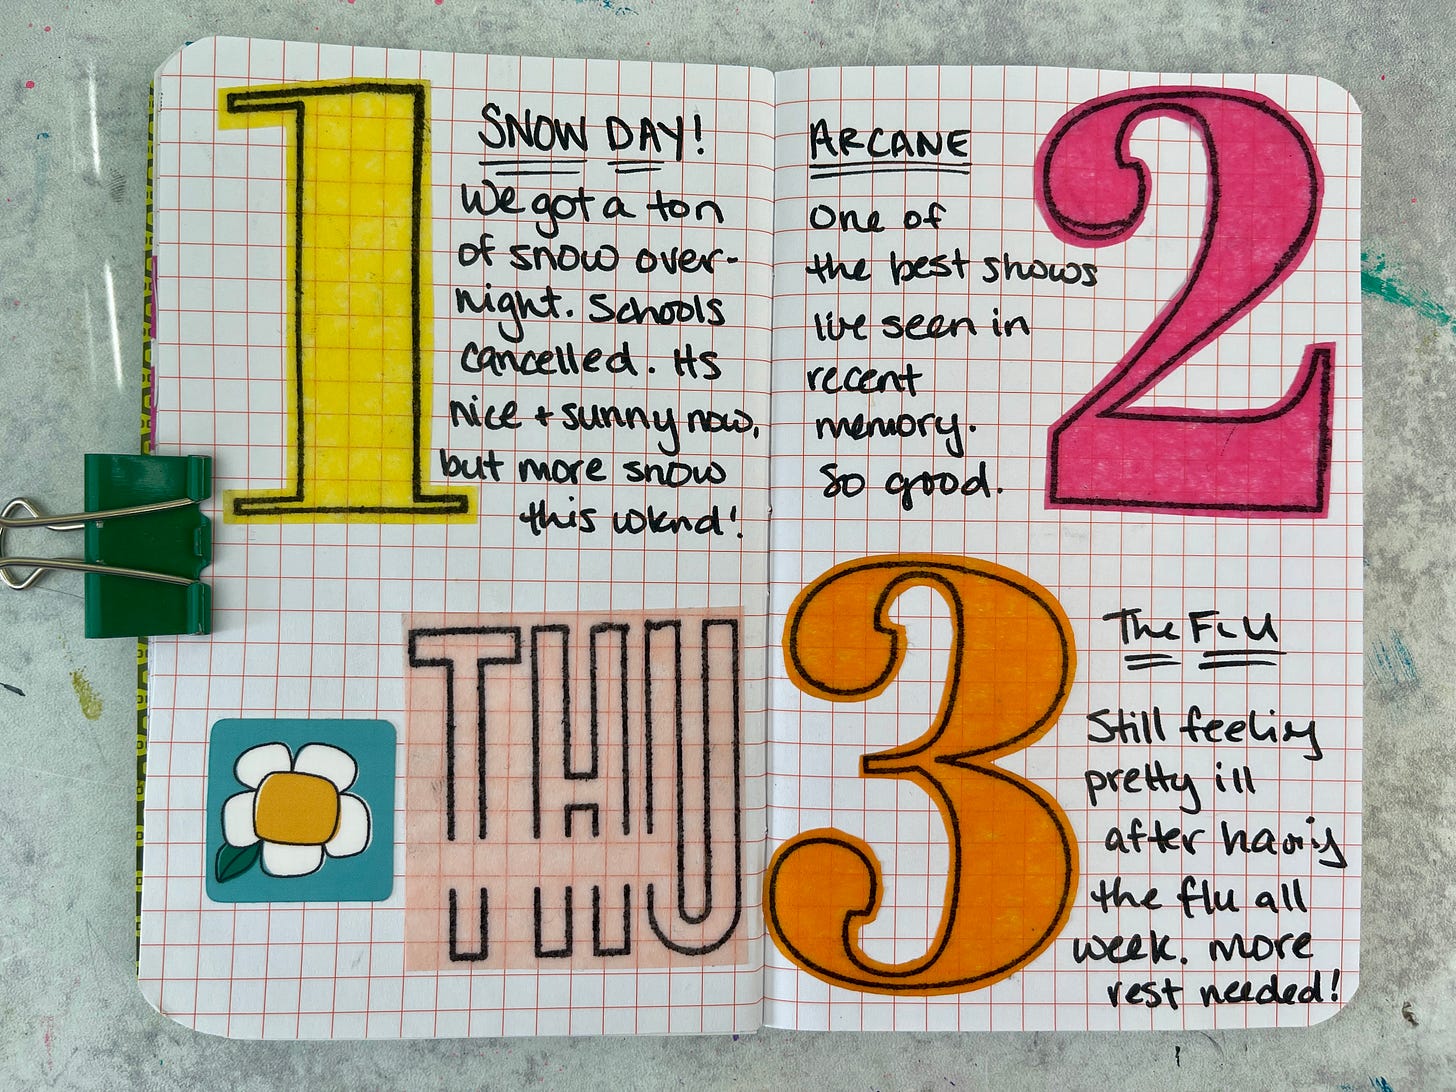 1
SNOW DAY!
We got a ton
of snow over-
night. Schools
cancelled. Its
nice + sunny now,
but more snow
this wknd!
2
ARCANE
One of
the best shows
I've seen in
recent
memory.
So good.
THU
3
The FLU
Still feeling
pretty ill
after having
the flu all
week. More
rest needed!